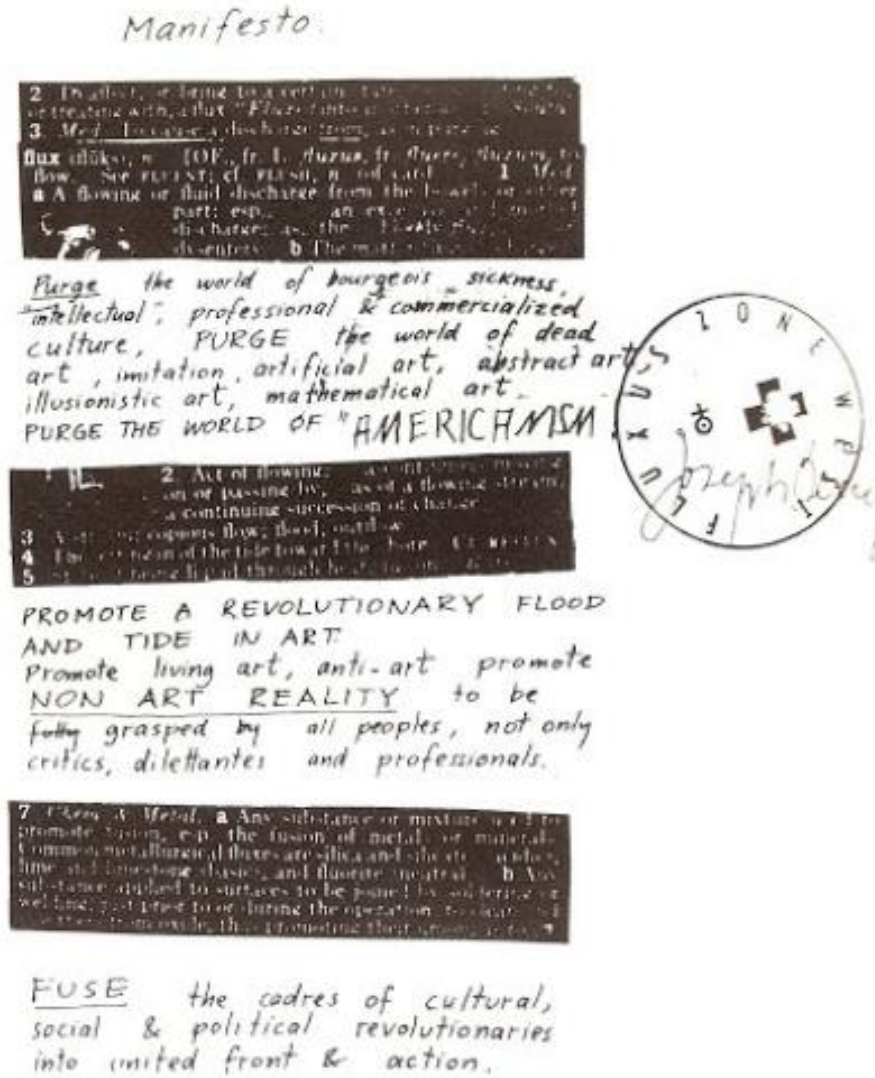 Manifesto.
2 To affect, or bring to a certain
or treating with, a flux
3 Med. To cause a discharge from, as in
flux n. [OF., fr. L. fluxus, fr. fluere, fluxum, to
flow. See FLUENT; cf. FLUSH, n. 1 Med.
a A flowing or fluid discharge from the bowels or other
part: esp., an
discharge: as, the
b The matter
Purge the world of bourgeois sickness,
"intellectual", professional & commercialized
culture, PURGE the world of dead
art, imitation, artificial art, abstract art,
illusionistic art, mathematical art,
PURGE THE WORLD OF "AMERICANISM"
FLUXUS ZONE WEST
Joseph
2 Act of flowing:
on or passing by, as of a flowing stream;
a continuing succession of changes
3 copious flow; flood; outflow
4 The setting in of the tide toward the shore.
5
PROMOTE A REVOLUTIONARY FLOOD
AND TIDE IN ART.
Promote living art, anti-art promote
NON ART REALITY to be
fully grasped by all peoples, not only
critics, dilettantes and professionals.
7 Chem. & Metal. a Any substance or mixture used to
promote fusion, esp. the fusion of metals or minerals.
Common metallurgical fluxes are silica and silicates
lime and limestone (basic), and fluorite (neutral). b Any
substance applied to surfaces to be joined by soldering or
welding, just prior to or during the operation, to clean
FUSE the cadres of cultural,
social & political revolutionaries
into united front & action.